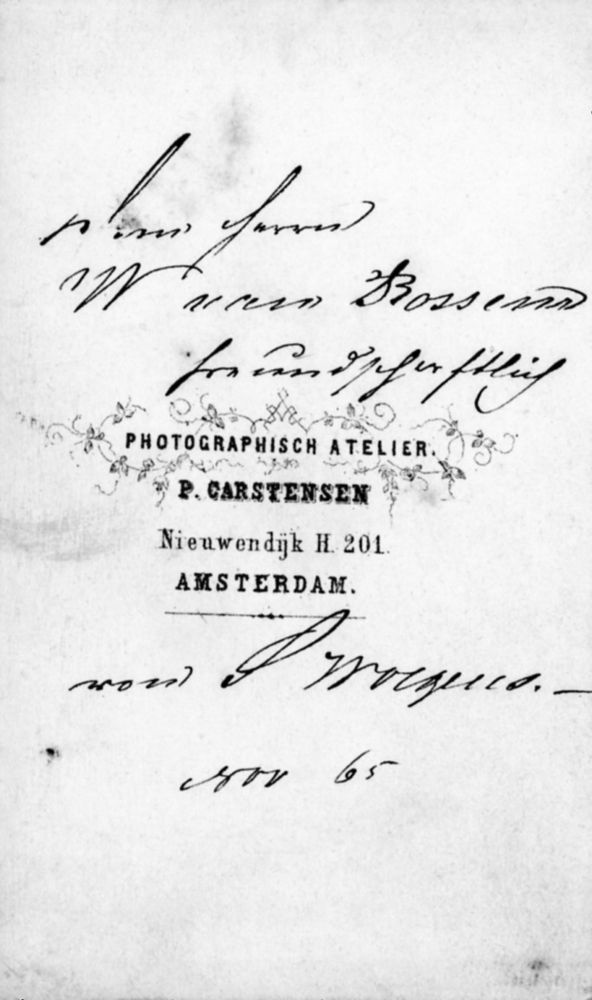 Herrn
W van Bossen
freundschaftlich
PHOTOGRAPHISCH ATELIER.
P. CARSTENSEN
Nieuwendijk H. 201.
AMSTERDAM.
von
Nov 65